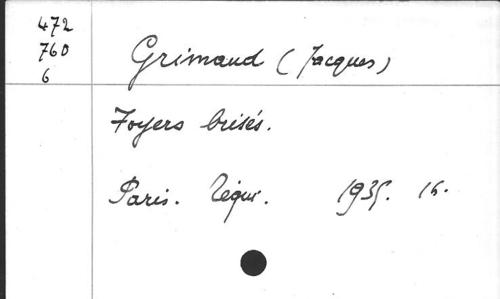 472
760
6
Grimaud (Jacques)
Foyers brisés.
Paris. Téqui. 1935. 16.